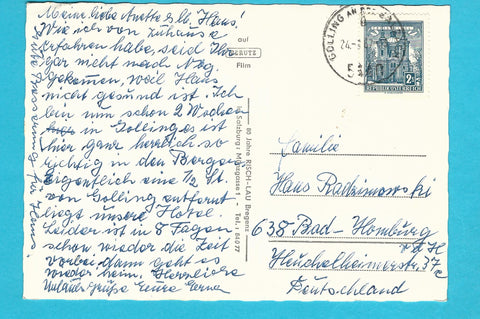 Meine liebe Anette & lb. Hans!
Wie ich von zuhause
erfahren habe, seid Ihr
gar nicht nach Nbg.
gekommen, weil Hans
nicht gesund ist. Ich
bin nun schon 2 Wochen
in Golling es ist
hier ganz herrlich so
richtig in den Bergen
eigentlich eine 1/2 St.
von Golling entfernt
liegt unser Hotel.
Leider ist in 8 Tagen
schon wieder die Zeit
vorbei dann geht es
wieder heim. Herzliche
Urlaubsgrüße Eure Erna
Gute Besserung für Hans!
auf
PERUTZ
Film
80 Jahre RISCH-LAU Bregenz
Salzburg, Makartgasse 1, Tel.
GOLLING AN DER
24.
REPUBLIK ÖSTERREICH
Familie
Hans Radzimowski
638 Bad-Homburg
v d H
Heuchelheimerstr. 37c
Deutschland